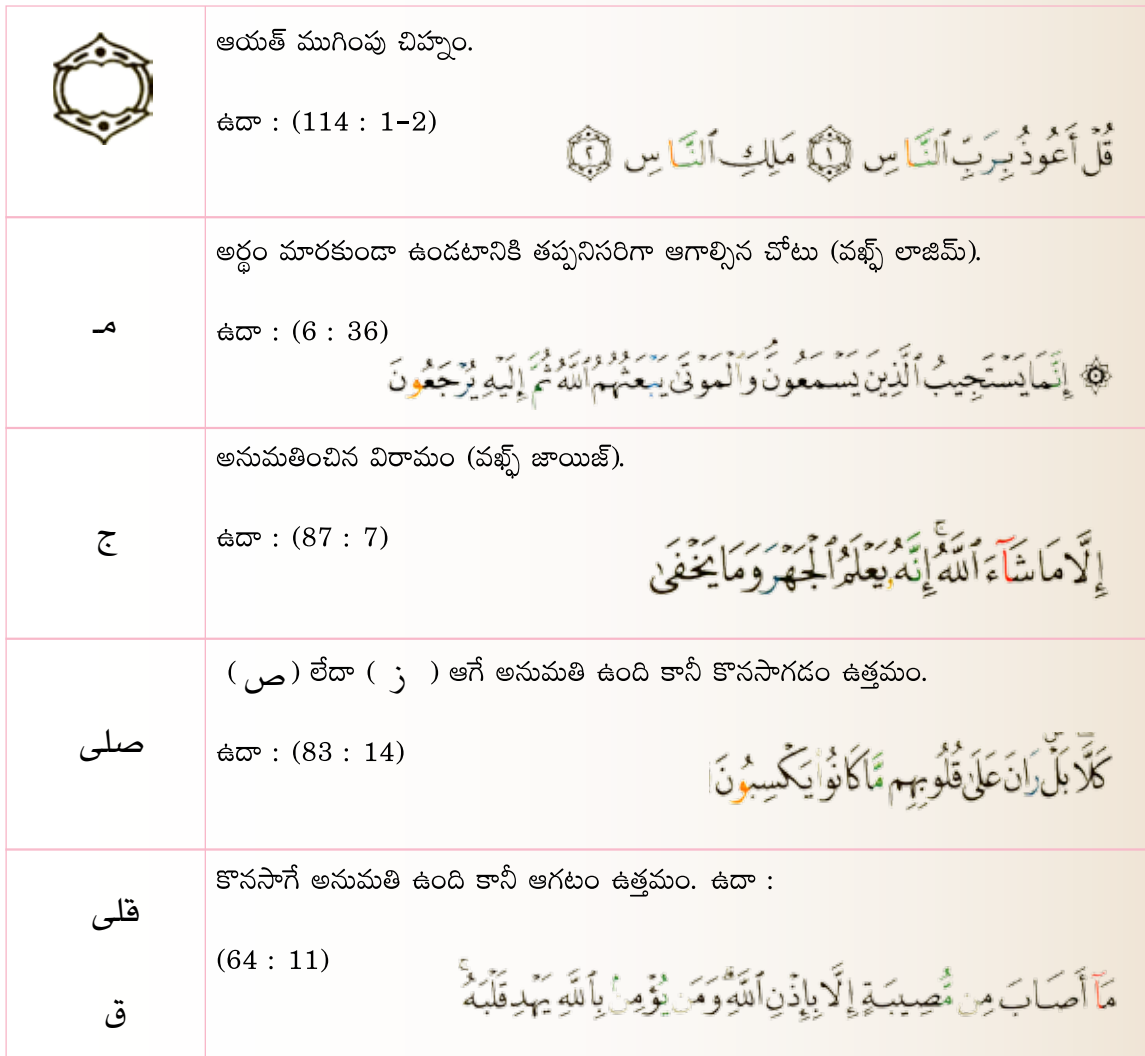 ఆయత్ ముగింపు చిహ్నం.
ఉదా : (114 : 1-2)
قُلْ أَعُوذُ بِرَبِّ ٱلنَّاسِ ١ مَلِكِ ٱلنَّاسِ ٢
مـ
అర్థం మారకుండా ఉండటానికి తప్పనిసరిగా ఆగాల్సిన చోటు (వఖ్ఫ్ లాజిమ్).
ఉదా : (6 : 36)
۞ إِنَّمَا يَسْتَجِيبُ ٱلَّذِينَ يَسْمَعُونَۘ وَٱلْمَوْتَىٰ يَبْعَثُهُمُ ٱللَّهُ ثُمَّ إِلَيْهِ يُرْجَعُونَ
ج
అనుమతించిన విరామం (వఖ్ఫ్ జాయిజ్).
ఉదా : (87 : 7)
إِلَّا مَا شَآءَ ٱللَّهُۚ إِنَّهُۥ يَعْلَمُ ٱلْجَهْرَ وَمَا يَخْفَىٰ
صلى
(ص) లేదా ( ز ) ఆగే అనుమతి ఉంది కానీ కొనసాగడం ఉత్తమం.
ఉదా : (83 : 14)
كَلَّاۖ بَلْۜ رَانَ عَلَىٰ قُلُوبِهِم مَّا كَانُوا۟ يَكْسِبُونَ
قلى
ق
కొనసాగే అనుమతి ఉంది కానీ ఆగటం ఉత్తమం. ఉదా :
(64 : 11)
مَآ أَصَابَ مِن مُّصِيبَةٍ إِلَّا بِإِذْنِ ٱللَّهِۗ وَمَن يُؤْمِنۢ بِٱللَّهِ يَهْدِ قَلْبَهُۥۚ